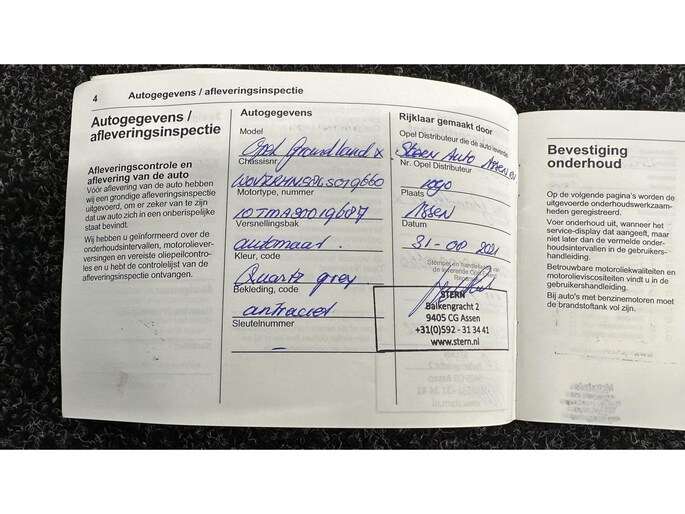 4 Autogegevens / afleveringsinspectie
Autogegevens /
afleveringsinspectie
Afleveringscontrole en
aflevering van de auto
Vóór aflevering van de auto hebben
wij een grondige afleveringsinspectie
uitgevoerd, om er zeker van te zijn
dat uw auto zich in een onberispelijke
staat bevindt.
Wij hebben u geïnformeerd over de
onderhoudsintervallen, motoroliever-
versingen en vereiste oliepeilcontro-
les en u hebt de controlelijst van de
afleveringsinspectie ontvangen.
Autogegevens
Model
Opel Grandland X
Chassisnr.
Motortype, nummer
Versnellingsbak
automaat.
Kleur, code
Quartz grey
Bekleding, code
antraciet
Sleutelnummer
–
Rijklaar gemaakt door
Opel Distributeur die de auto leverde
Stern Auto Assen
Nr. Opel Distributeur
Plaats
Assen
Datum
Stempel en handtekening van
de leverende Opel
STERN
Balkengracht 2
9405 CG Assen
+31(0)592 - 31 34 41
www.stern.nl
Bevestiging
onderhoud
Op de volgende pagina's worden de
uitgevoerde onderhoudswerkzaam-
heden geregistreerd.
Voer onderhoud uit, wanneer het
service-display dat aangeeft, maar
niet later dan de vermelde onder-
houdsintervallen in de gebruikers-
handleiding.
Betrouwbare motoroliekwaliteiten en
motorolieviscositeiten vindt u in de
gebruikershandleiding.
Bij auto's met benzinemotoren moet
de brandstoftank vol zijn.